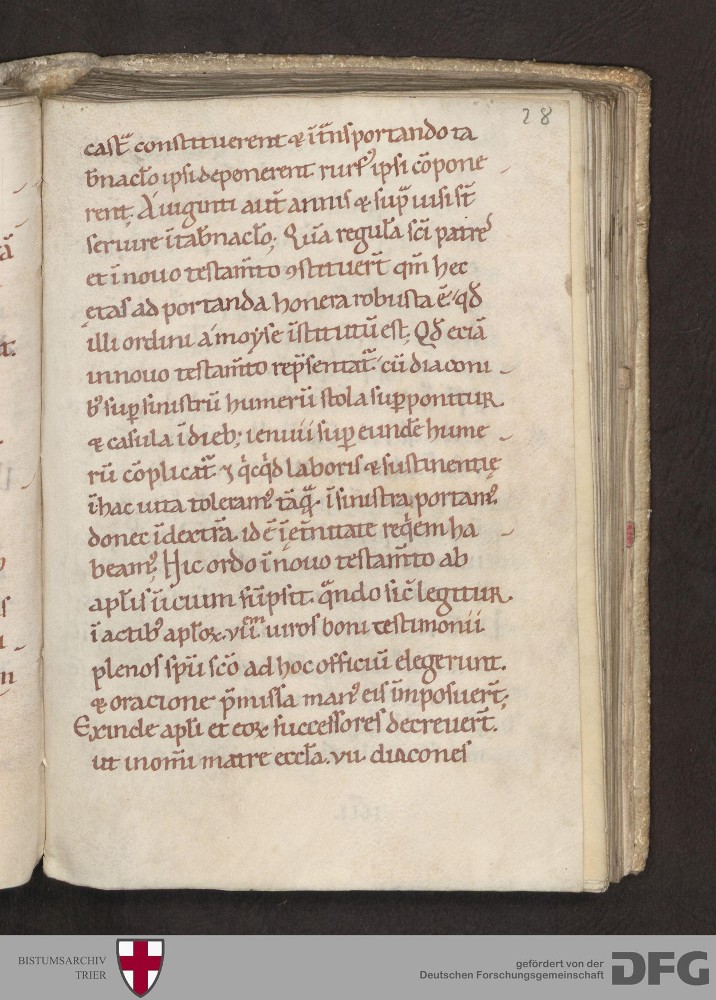 28
castͬ constituerent & īt̄nsportando ta
b̄nacło ipsi deponerent rursꝰ ipsi cōpone
rent. A uiginti aut̄ annis & sup̄ uisi st̄
seruire ī tab̄nacło; Qīa reguła sc̄i patreˢ
et ī nouo testam̄to ꝯstituer̄t qm̄ hec
etas ad portanda honera robusta ē. qđ
illi ordini a moẏse īstitutū est; Qđ eciā
in nouo testam̄to rep̄sentat᷑. cū diaconi
bꝰ suꝑ sinistrū humerū stola suꝑponitur
& casula ī dieb; ieiunii suꝑ eundē hume
rū cōplicat᷑ ⁊ qͥcqͥd laboris & sustinentię
ī hac uita toleramꝰ tāqͣ ī sinistra portamꝰ
donec ī dextr̄a. id ē ī ęt̄nitate reqͥem ha
beamꝰ; Hic ordo ī nouo testam̄to ab
apłis īicium sūpsit. qͣndo sic̄ legitur.
ī actibꝰ apłoꝝ. vii uiros boni testimonii
plenos sp̄u sc̄o ad hoc officiū elegerunt.
& oracione p̄missa manꝰ eis īmposuer̄t;
Exinde apłi et eoꝝ successores decreuer̄t.
ut in om̄i matre eccła. vii. diacones
BISTUMSARCHIV
TRIER
gefördert von der
Deutschen Forschungsgemeinschaft
DFG